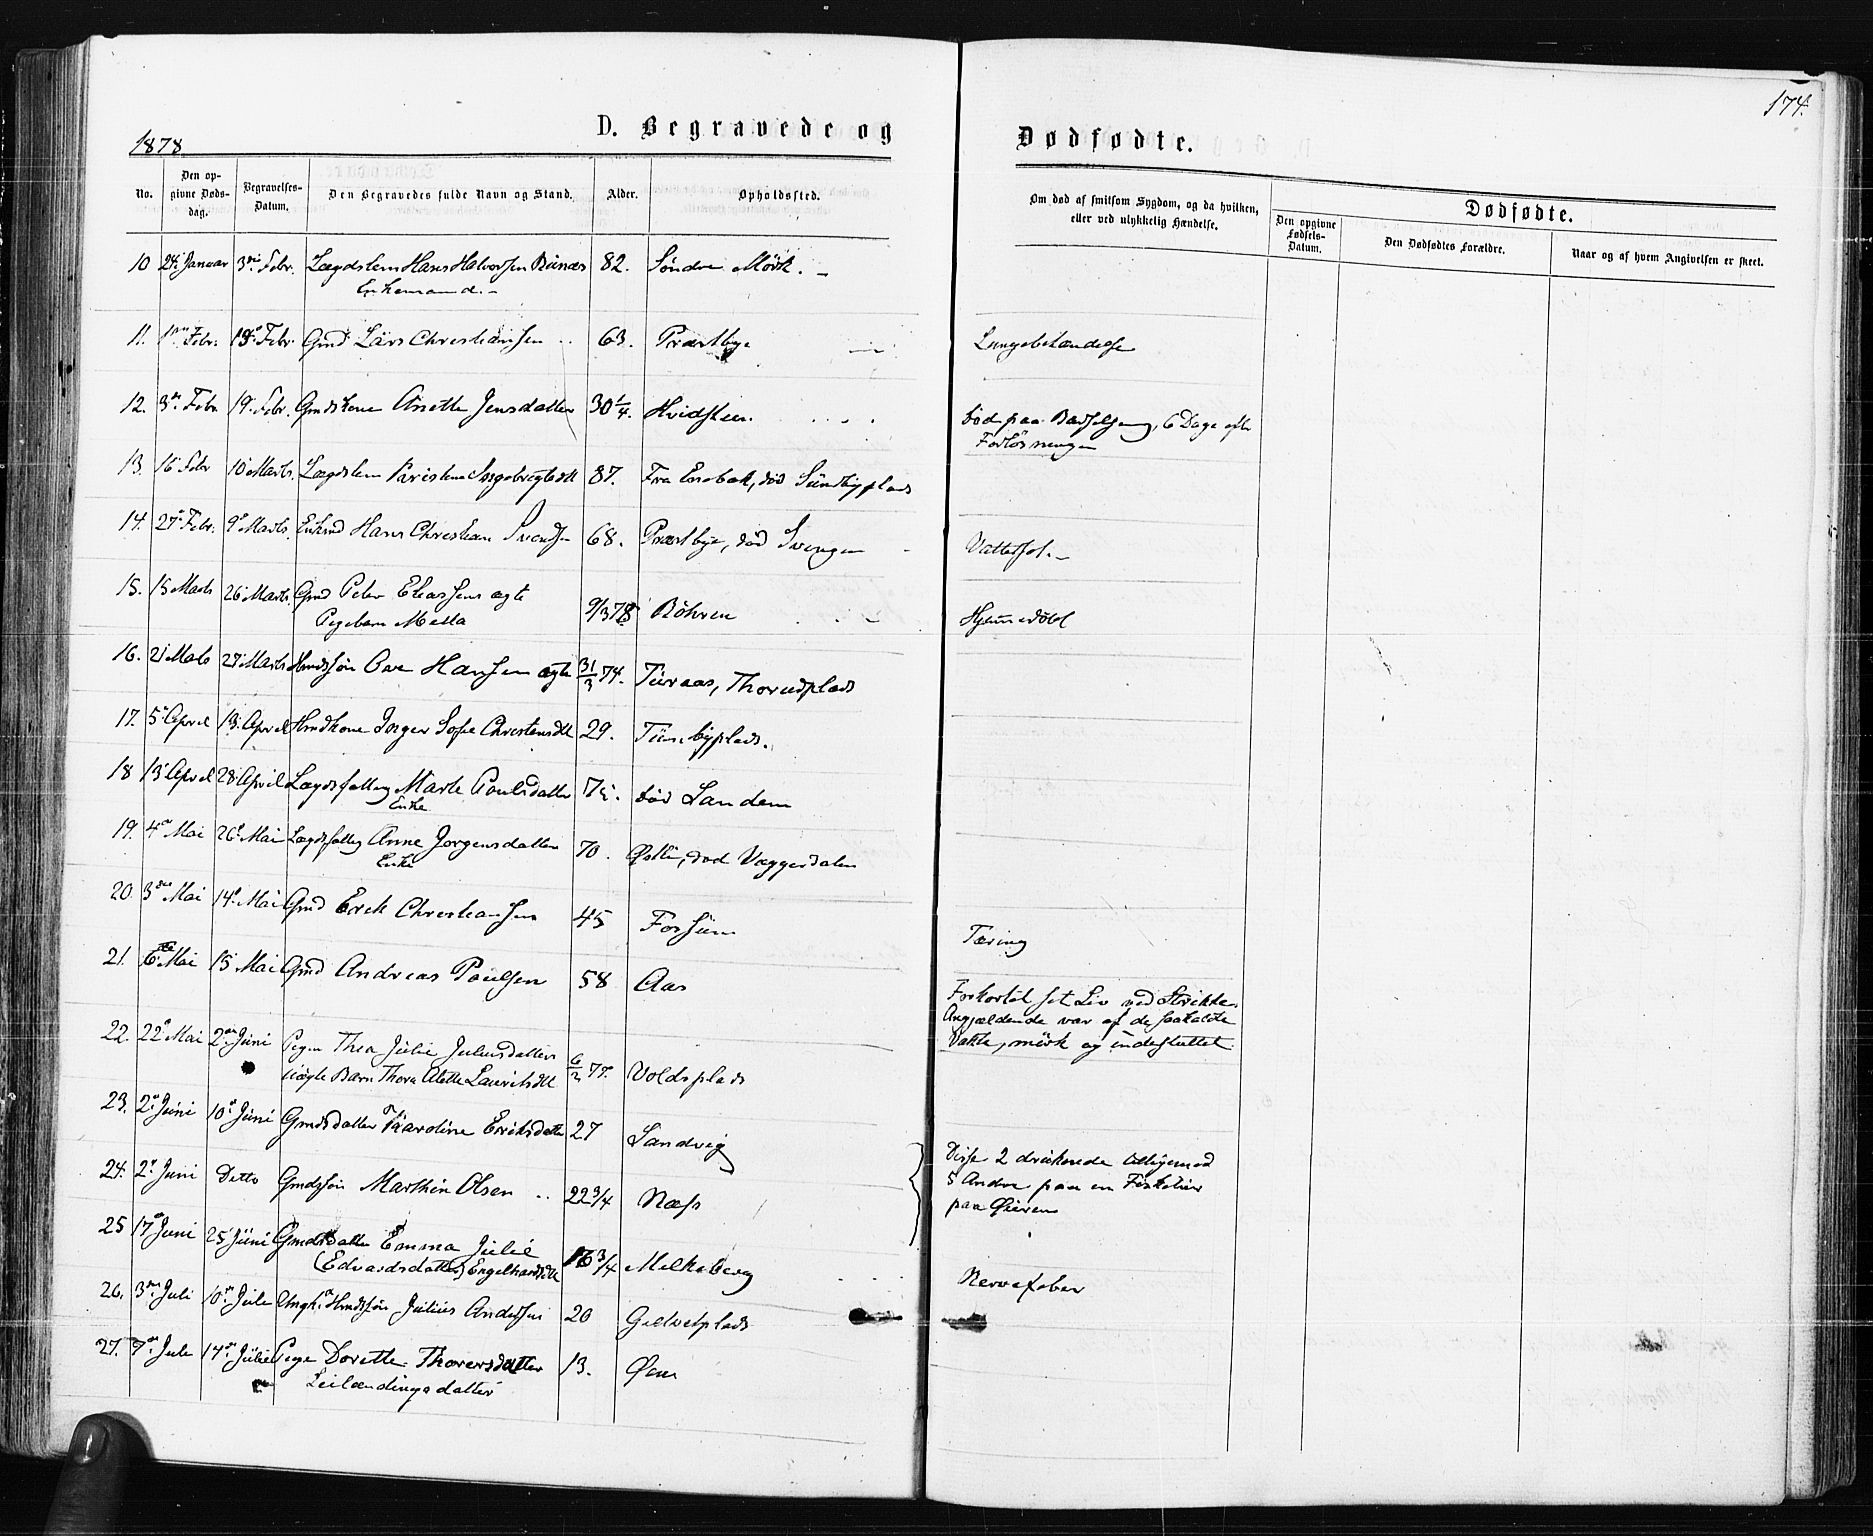 174.
1878
D. Begravede og Dødfødte.
No.
Den op-
givne Døds-
dag.
Begravelses-
Datum.
Den Begravedes fulde Navn og Stand.
Alder.
Opholdssted.
Om død af smitsom Sygdom, og da hvilken,
eller ved ulykkelig Hændelse.
Dødfødte.
Den opgivne
Fødsels-
Datum.
Den Dødfødtes Forældre.
Naar og af hvem Angivelsen er skeet.
10 24. Januar 3die Febr. Lægdslem Hans Halvorsen 82. Søndre Mörk.
Enkemand.
11. 1ste Febr. Febr. Gmd Lars Christiansen 63. Præstbye Lungebetændelse
12. 3die Febr. 19. Febr. Gmdskone Anette Jensdatter 30 1/4. Hvidsteen. Død paa Barselseng, 6 Dage efter
Forløsningen
13. 16 Febr 10 Marts. Lægdslem Ingebrigtsdtt 87. Fra Enebak, død Sundbyplads
14. 27de Febr. 9de Marts. Hans Christian Svendsen 68. Præstbye, død Svingen Vattersot.
15. 15 Marts 26 Marts. Gmd Peder Eliassens ægte
Pigebarn 9/3 78 Böhren
16. 21 Marts 27 Marts Hmdssøn Ove Hansen ægte 31/3 74. Turaas, Thorudplads
17. 5te April 13. April Hmdkone Inger Sofie Christensdtt 29. Tunebyplads.
18 13 April 28 April Marte Poulsdatter død Sandem
Enke
19. 4de Mai 26de Mai Anne Jorgensdatter 70. Østbi, død Væggerdalen
Enke
20. 3die Mai 14de Mai Gmd Erik Christiansen 45 Forsum Tæring
21. 6te Mai 15 Mai Gmd Andreas Poulsen 58 Aas Forkortet sit Liv ved Strikke.
Angjældende var af de saakaldte
Vakte, mörk og indesluttet
22. 22de Mai 2den Juni Pigen Thea Julie Juliusdatters
uægte Barn Thora Alette Lauritsdtt 6/2 77. Voldsplads
23. 2den Juni 10de Juni Gmdsdatter Karoline Eriksdatter 27 Sandvig
24. 2den Juni Ditto Gmdssön Marthin Olsen 22 3/4 Næss
Disse 2 druknede tilligemed
5 Andre paa en Fisketour
paa Øieren
25 17de Juni 25 Juni Gmdsdatter Emma Julie
(Edvardsdatter) Engelhardsdtt 16 3/4 Melkeberg Nervefeber
26. 3die Juli 10de Juli Ungk. Hmdssön Julius Andersen 20 Gielvelplads
27. 7de Juli 14de Juli Pige Dorette Thorersdatter 13. Øen
Leilændingsdatter